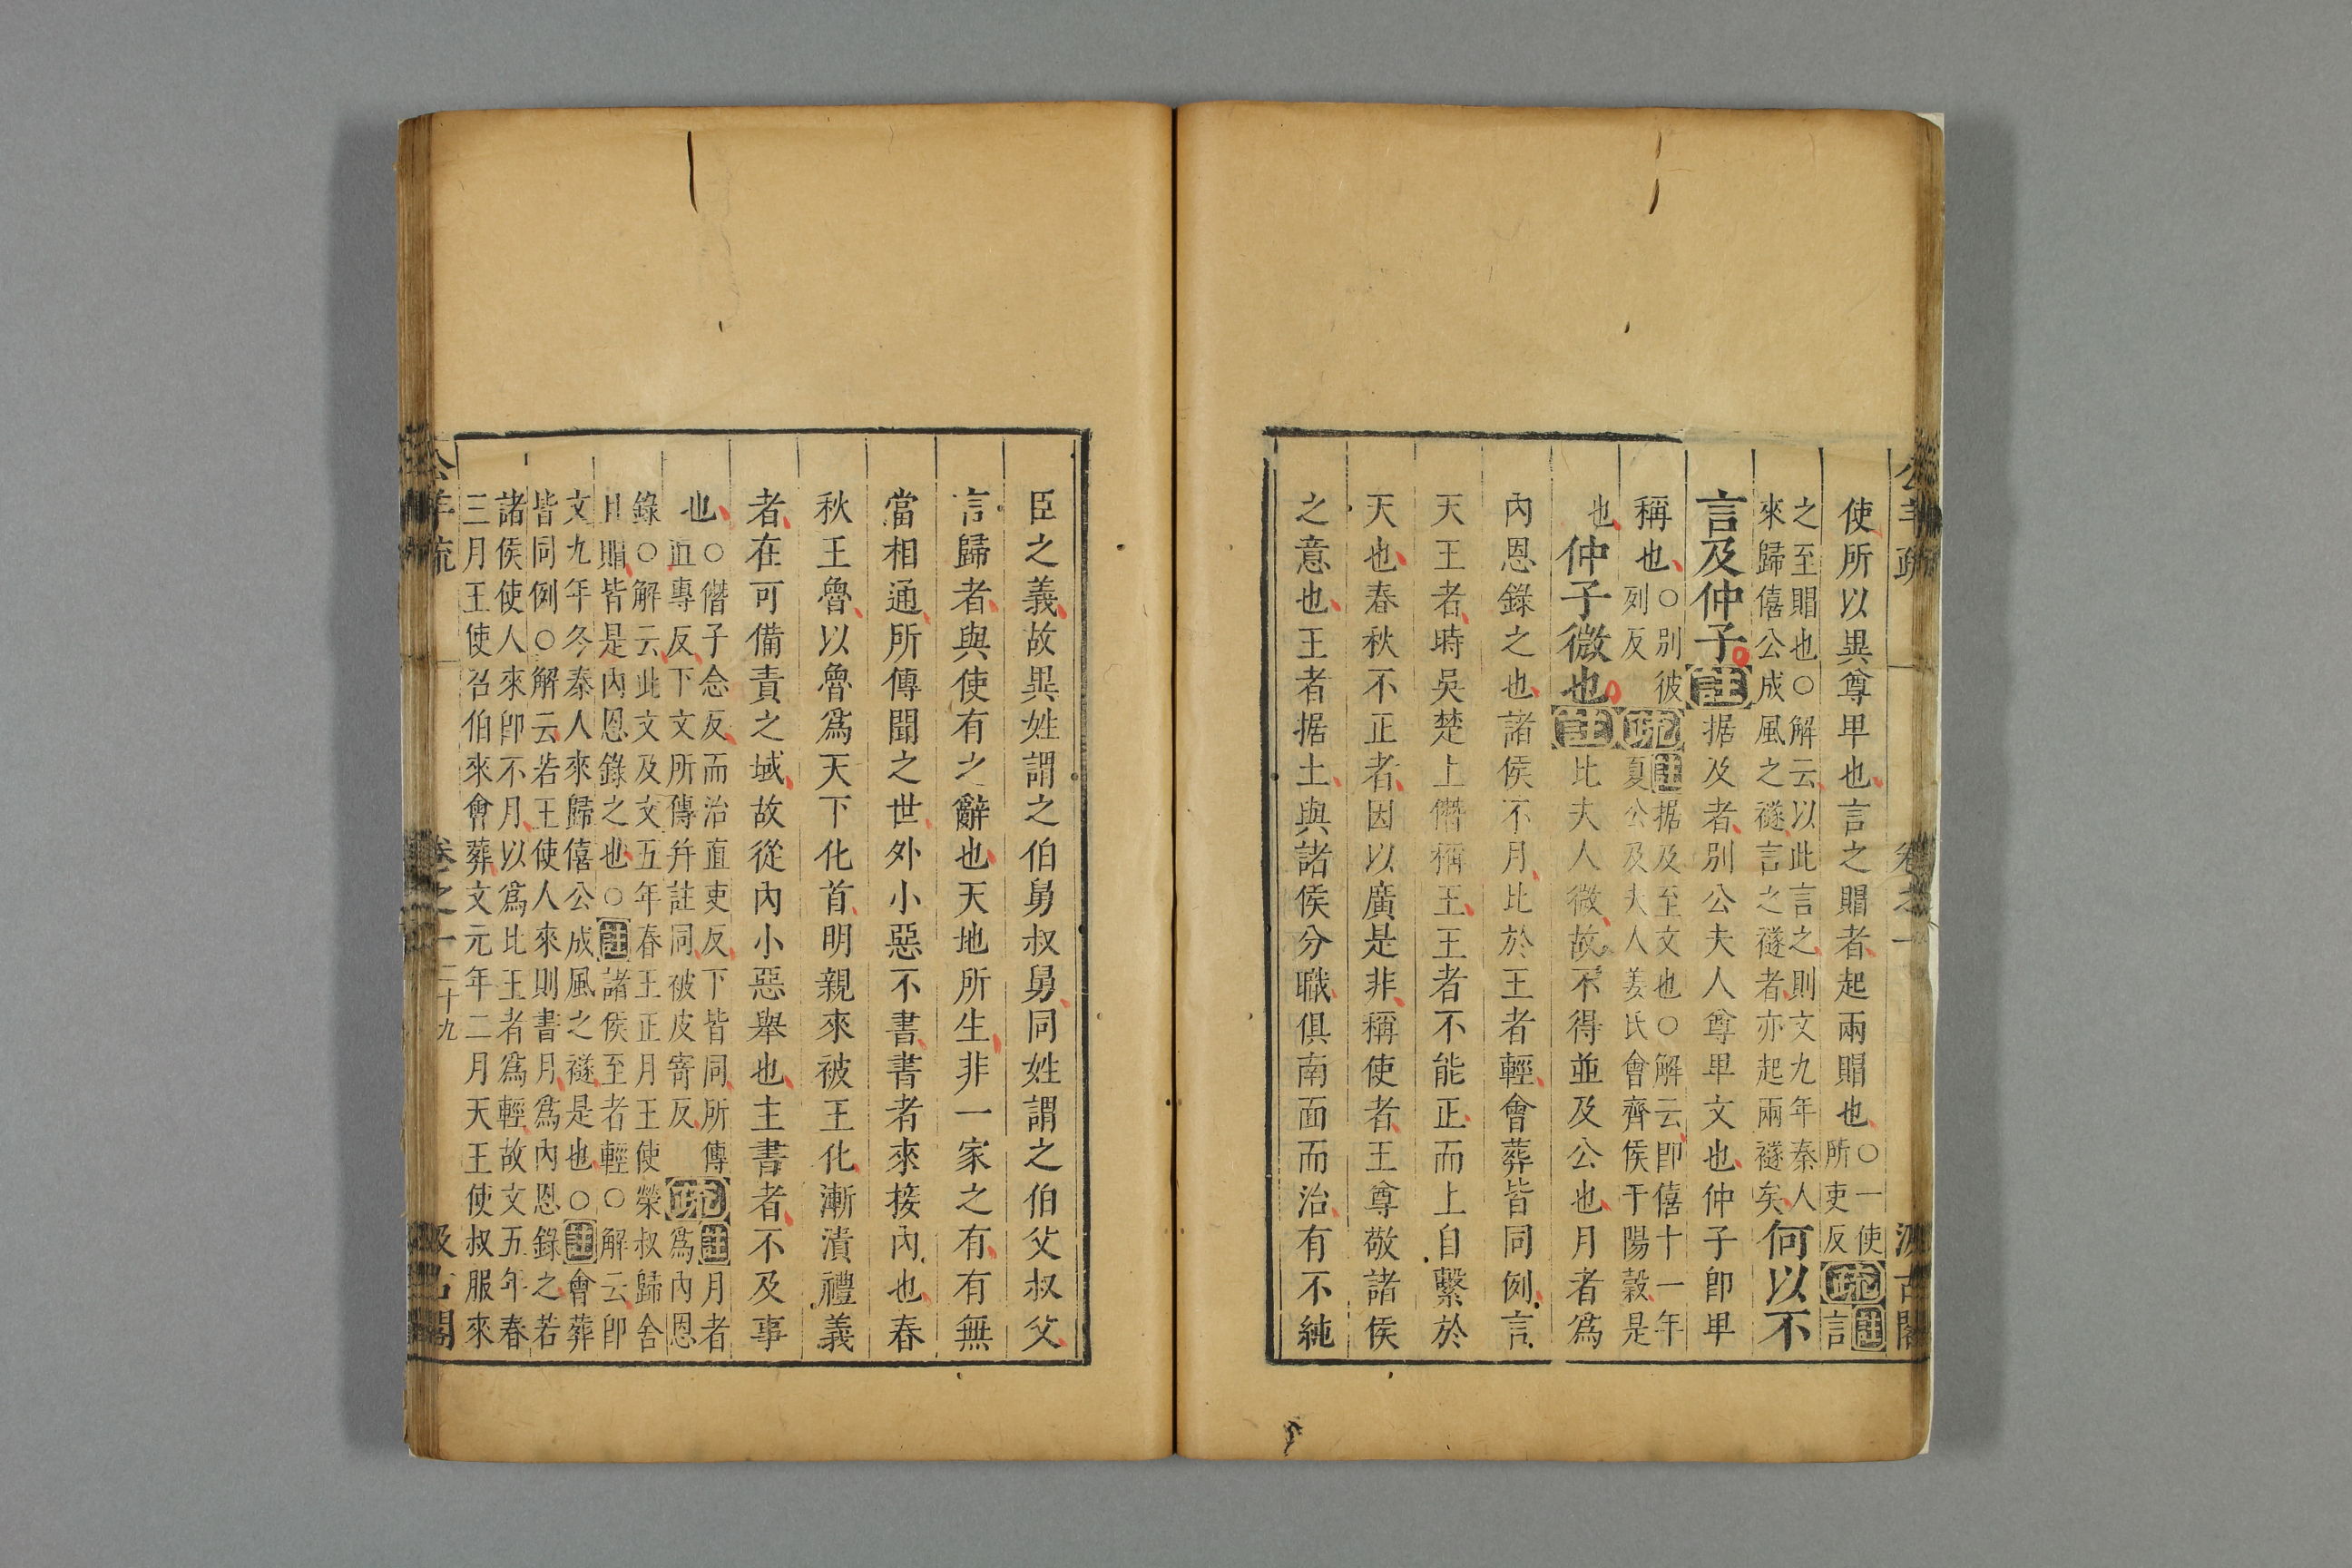 公羊疏 卷之一 汲古閣
使所以異尊卑也言之賵者起兩賵也○一使
所吏反疏註言
之至賵也○解云以此言之則文九年秦人
來歸僖公成風之襚言之襚者亦起兩襚矣何以不
言及仲子註据及者別公夫人尊卑文也仲子卽卑
稱也○別彼
列反疏註据及至文也○解云卽僖十一年
夏公及夫人姜氏會齊侯于陽穀是
也仲子微也註比夫人微故不得並及公也月者爲
內恩錄之也諸侯不月比於王者輕會葬皆同例言
天王者時吳楚上僭稱王王者不能正而上自繫於
天也春秋不正者因以廣是非稱使者王尊敬諸侯
之意也王者据土與諸侯分職俱南面而治有不純
臣之義故異姓謂之伯舅叔舅同姓謂之伯父叔父
言歸者與使有之辭也天地所生非一家之有有無
當相通所傳聞之世外小惡不書書者來接內也春
秋王魯以魯爲天下化首明親來被王化漸漬禮義
者在可備責之域故從內小惡舉也主書者不及事
也○僭子念反而治直吏反下皆同所傳
直專反下文所傳幷註同被皮寄反疏註月者
爲內恩
錄○解云此文及文五年春王正月王使榮叔歸含
且賵皆是內恩錄之也○註諸侯至者輕○解云卽
文九年冬秦人來歸僖公成風之襚是也○註會葬
皆同例○解云若王使人來則書月爲內恩錄之若
諸侯使人來卽不月以爲比王者爲輕故文五年春
三月王使召伯來會葬文元年二月天王使叔服來
公羊疏 卷之一 二十九 汲古閣